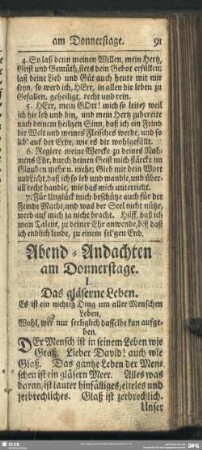 am Donnerstage. 91
4. So laß denn meinen Willen, mein Hertz,
Geist und Gemüth, stets dein Gebot erfüllen;
laß deine Lieb und Güt auch heute mit mir
seyn, so werd ich, HErr, in allen dir leben zu
Gefallen, geheiligt, recht und rein.
5. HErr, mein GOtt! mich so leite, weil
ich hie leb und bin, und mein Hertz zubereite
nach deinem heilgen Sinn, daß ich am Feind
der Welt und meines Fleisches werde, und so
leb auf der Erde, wie es dir wohlgefällt.
6. Regiere meine Wercke zu deines Nah-
mens Ehr, durch deinen Geist mich stärcke im
Glauben mehr u. mehr, Gieb mir dein Wort
und Licht, daß ich so leb und wandle, und über-
all recht handle, wie das mich unterricht.
7. Für Unglück mich beschütze auch für der
Feinde Macht, und was der Seel nicht nütze,
werd auf mich ja nicht bracht. Hilff, daß ich
mein Talent, zu deiner Ehr anwende, biß daß
ich endlich lende, zu einem selgen End.
Abend-Andachten
am Donnerstage.
I.
Das gläserne Leben.
Es ist ein nichtig Ding um aller Menschen
Leben,
Wohl, wer nur seeliglich dasselbe kan aufge-
ben.
DEr Mensch ist in seinem Leben wie
Graß. Lieber David! auch wie
Glaß. Das gantze Leben der Men-
schen ist ein gläsern Meer. Alles was
daran, ist lauter hinfälliges, eiteles und
zerbrechliches. Glaß ist zerbrechlich.
Unser